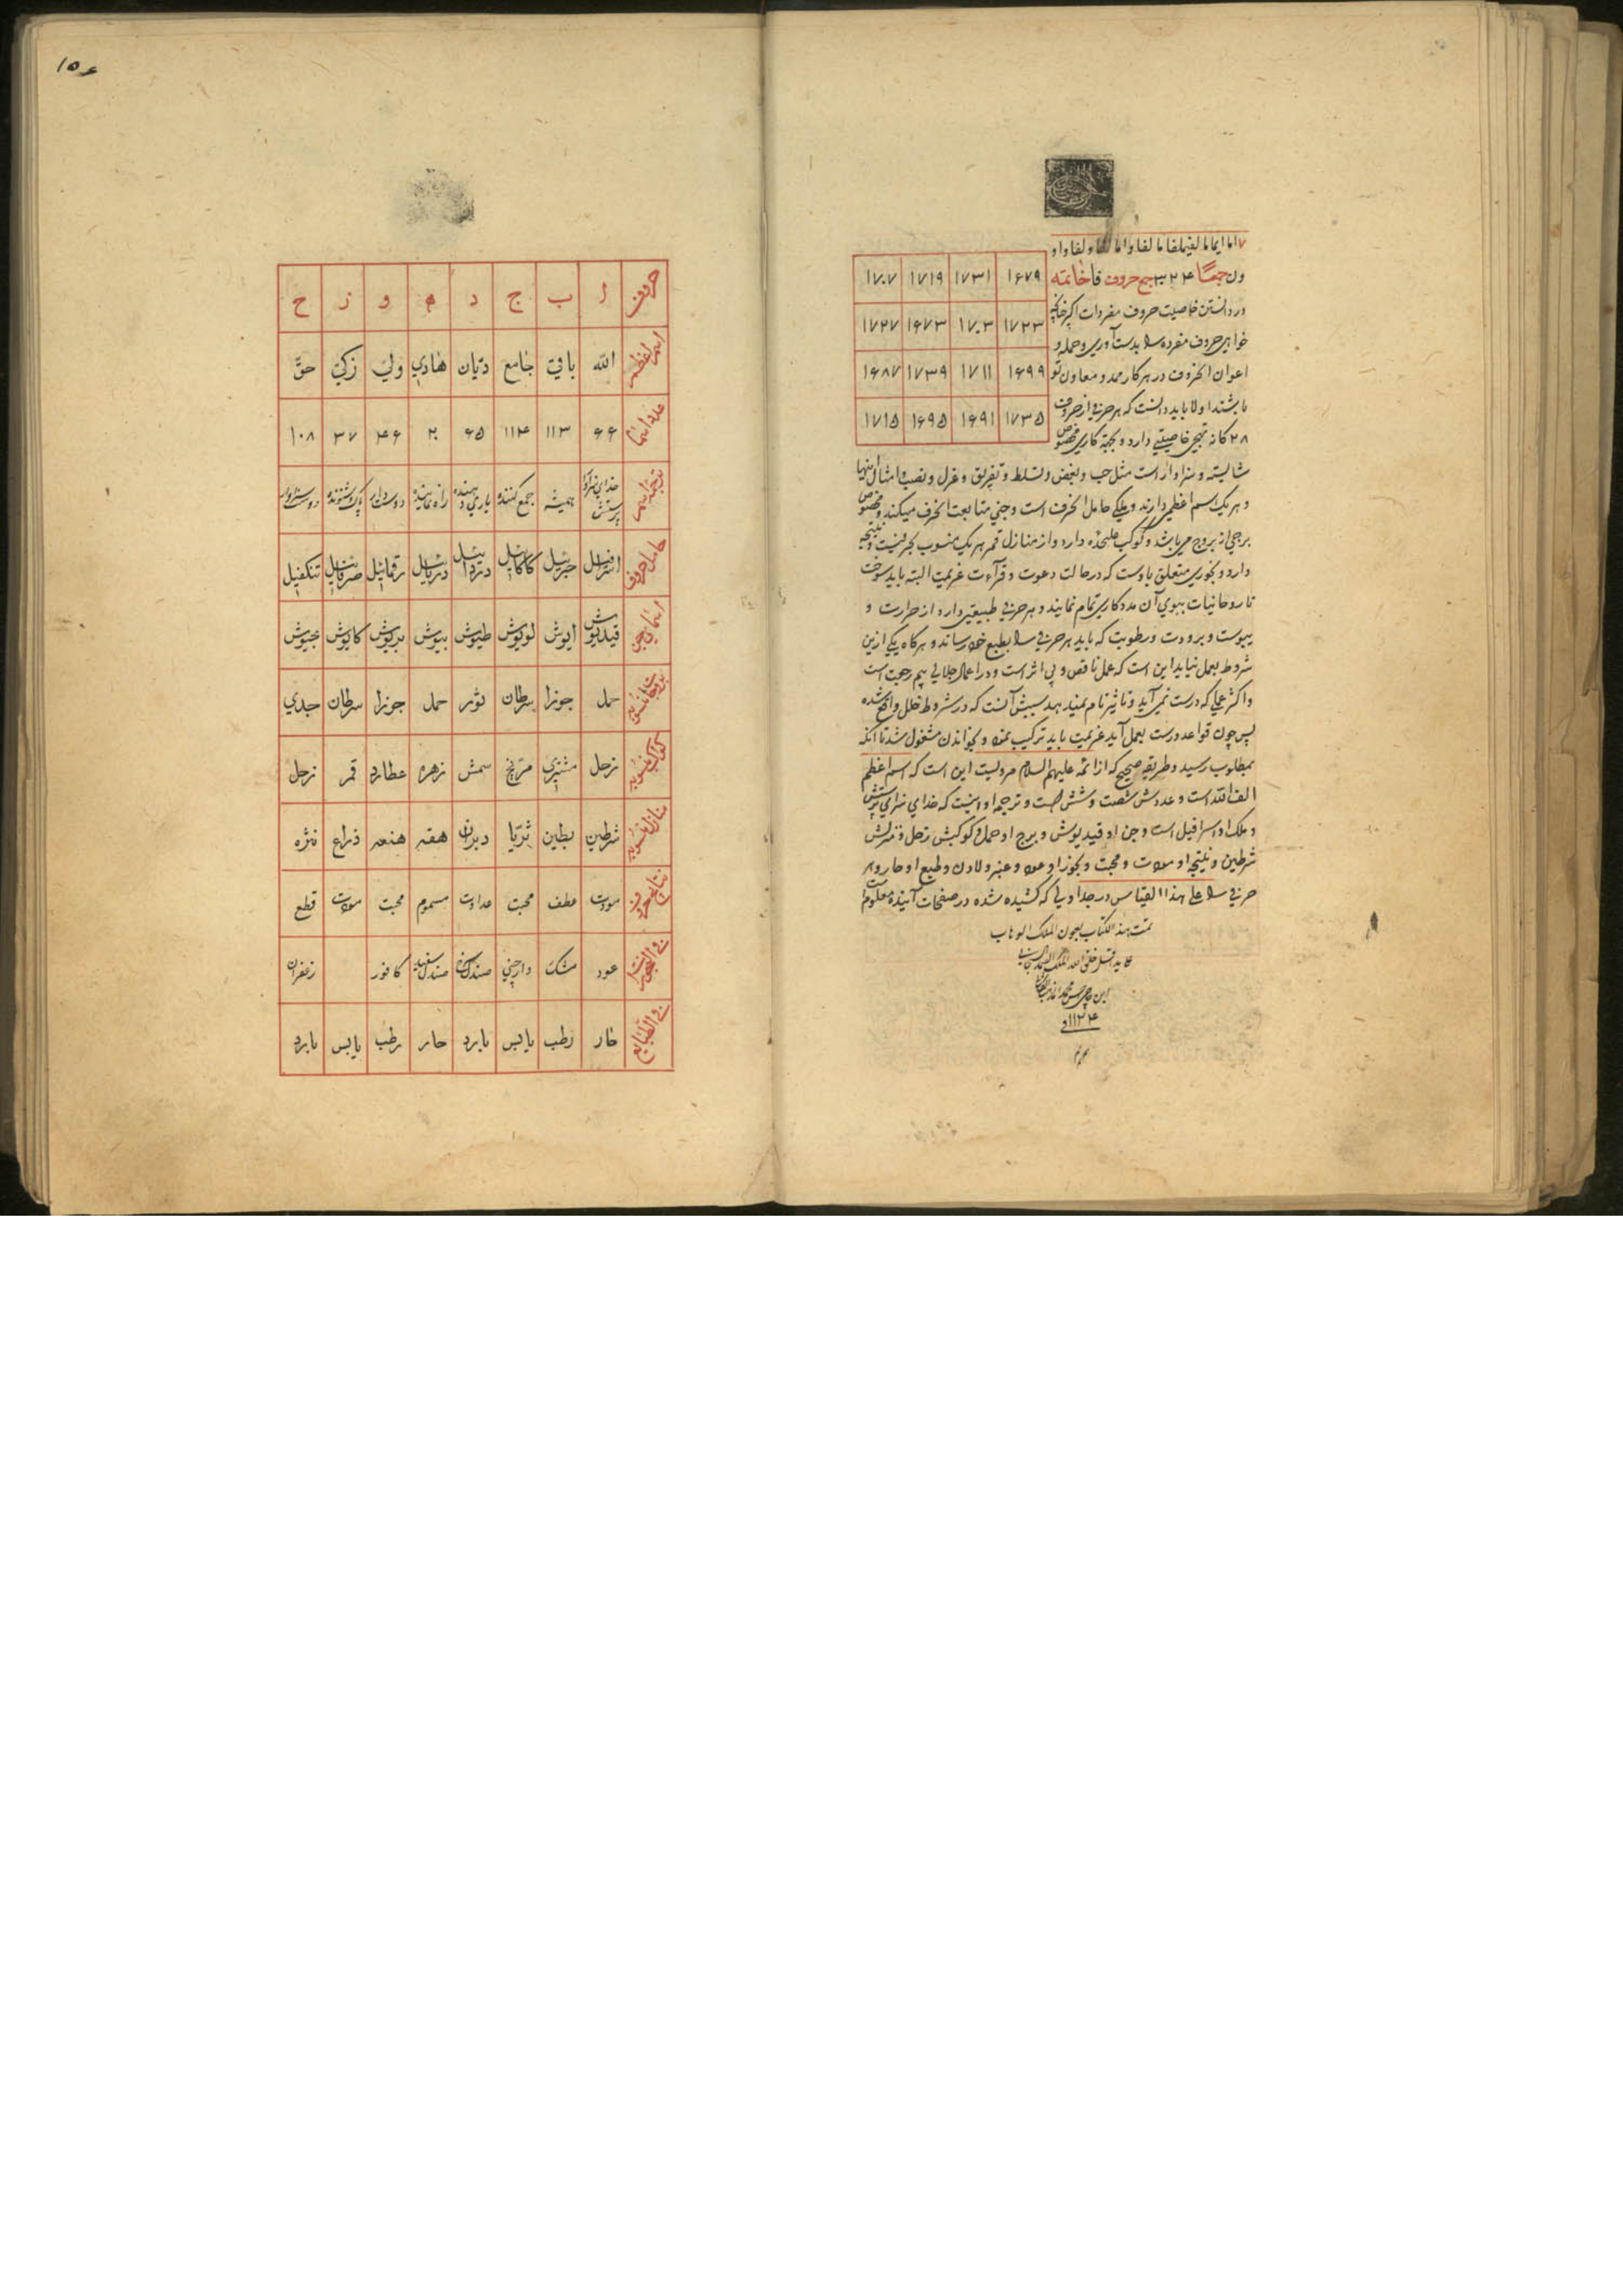 ۷ اما ایما ما لقیهلقا ما لقا و اما لقا و لقا و او
ون جمعًا ۳۲۴ جمع حروف فا خاتمه
در دانستن خاصیت حروف مفردات اکر خواهی
خواهی حروف مفرده را بدست آوری و حمله و
اعوان الحروف در هر کار ممد و معاون تو
باشند اولا باید دانست که هر حرفی از حروف
۲۸ کانه تهجی خاصیتی دارد و بجهة کاری مخصوص
۱۶۷۹ ۱۷۳۱ ۱۷۱۹ ۱۷۰۷
۱۷۲۳ ۱۷۰۳ ۱۶۷۳ ۱۷۲۷
۱۶۹۹ ۱۷۱۱ ۱۷۳۹ ۱۶۸۷
۱۷۳۵ ۱۶۹۱ ۱۶۹۵ ۱۷۱۵
شایسته و سزاوار است مثل حب و بغض و تسلط و تفریق و عزل و نصب و امثال اینها
و هر یک اسم اعظمی دارند و ملکی حامل الحرف است و جنی متابعت الحرف میکند و مخصوص
برجی از بروج می باشد و کوکب علیحده دارد و از منازل قمر هر یک منسوب بحرفیست و نتیجه
دارد و بخوری متعلق باوست که در حالت دعوت و قرآءت عزیمت البته باید سوخت
تا روحانیات ببوی آن مددکاری تمام نمایند و هر حرفی طبیعتی دارد از حرارت و
یبوست و برودت و رطوبت که باید هر حرفی را بطبع خود رساند و هرکاه یکی ازین
شروط بعمل نیاید این است که عمل ناقص و بی اثر است و در اعمال جلالی بیم رجعت است
و اکثر عملی که درست نمی آید و تاثیر تام نمیدهد سببش آنست که در شروط خلل واقع شده
پس چون قواعد درست بعمل آید عزیمت باید ترکیب نمود و بخواندن مشغول شد تا آنکه
بمطلوب رسید و طریقه صحیح که از ائمه علیهم السلام مرویست این است که اسم اعظم
الف الله است و عددش شصت و شش است و ترجمه او اینست که خدای سزای پرستش
و ملک او اسرافیل است و جن او قیدیوش و برج او حمل و کوکبش زحل و منزلش
شرطین و نتیجه او مودت و محبت و بخور او عود و عنبر و لادن و طبع او حار و هر
حرفی را علی هذا القیاس در جداولی که کشیده شده در صفحات آینده معلوم است
تمت هذا الکتاب بعون الملک الوهاب
۱۱۲۴
۱۵۶
حروف ا ب ج د ه و ز ح
اسم اعظم الله باقی جامع دیّان هادی ولی زکی حقّ
عدد اسما ۶۶ ۱۱۳ ۱۱۴ ۶۵ ۲۰ ۴۶ ۳۷ ۱۰۸
ترجمه اسما خدای سزاوار پرستش همیشه جمع کننده یاری دهنده راه نماینده دوستدار پاک شنونده
حامل حروف اسرافیل جبرائیل کلکائیل دردائیل دربائیل رقمائیل صرفائیل تنکفیل
اسمای جن قیدیوش ایوش لویوش طیوش بیوش بریوش کایوش خیوش
حمل جوزا سرطان ثور حمل جوزا سرطان جدی
کواکب منسوبه زحل مشتری مریخ شمس زهره عطارد قمر زحل
منازل منسوبه شرطین بطین ثریّا دبران هقعه هنعه ذراع نثره
نتایج حروف مودت عطف محبت عداوت مسموم محبت مودت قطع
عود مشک دارچینی صندل سرخ صندل سفید کافور زعفران
فی الطبایع حار رطب یابس بارد حار رطب یابس بارد